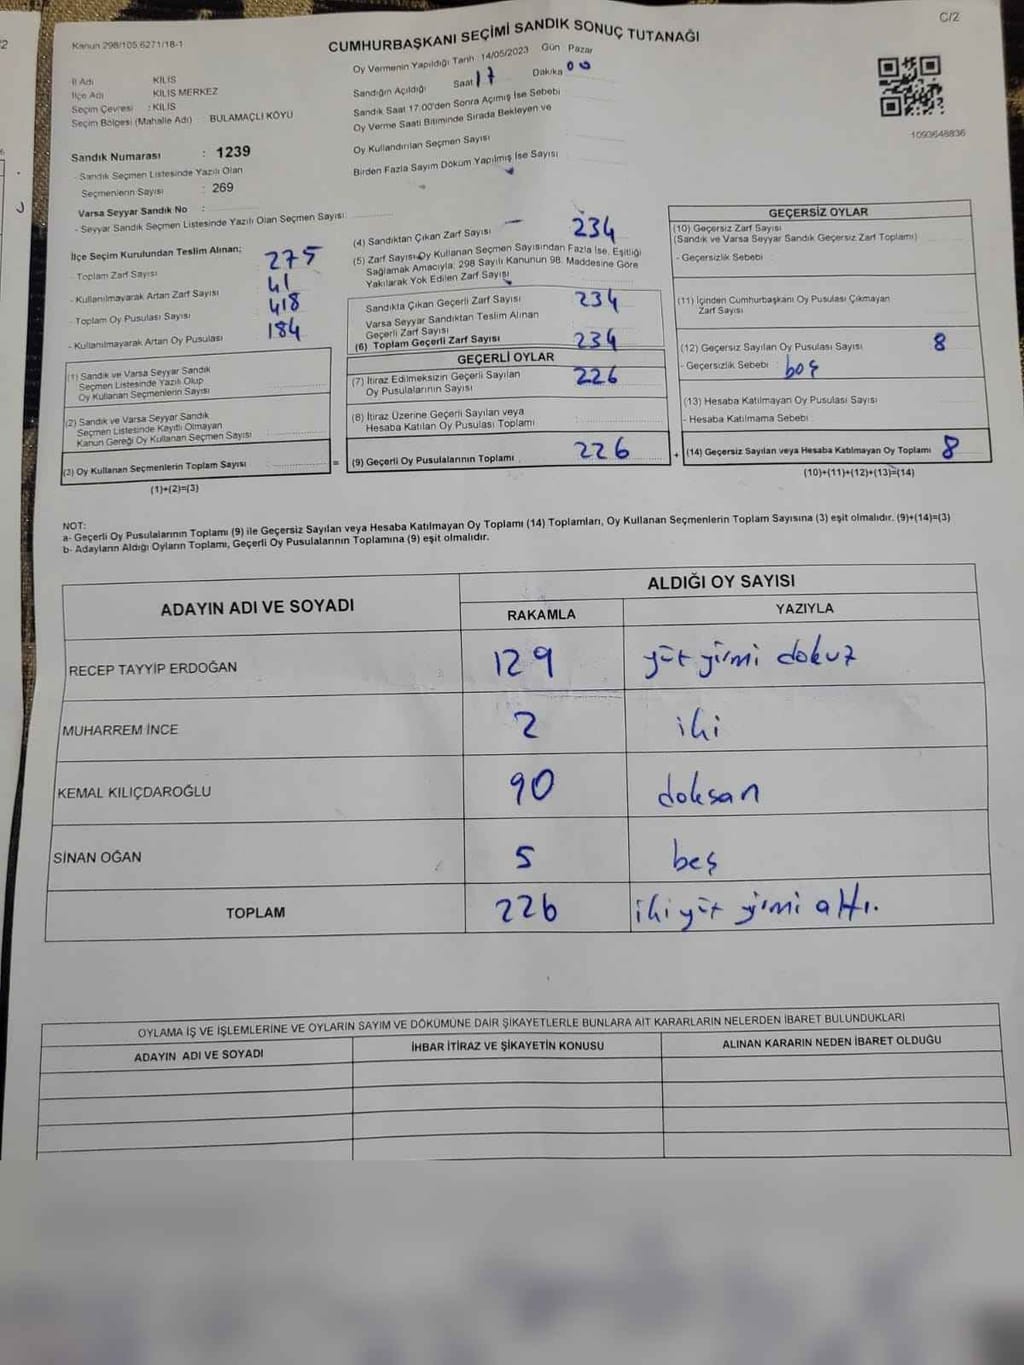 C/2
Kanun 298/105 6271/18-1
CUMHURBAŞKANI SEÇİMİ SANDIK SONUÇ TUTANAĞI
Oy Vermenin Yapıldığı Tarih 14/05/2023 Gün Pazar
İl Adı KİLİS
İlçe Adı KİLİS MERKEZ
Seçim Çevresi : KİLİS
Seçim Bölgesi (Mahalle Adı) BULAMAÇLI KÖYÜ
Sandığın Açıldığı Saat 17 Dakika 00
Sandık Saat 17:00'den Sonra Açımış İse Sebebi
Oy Verme Saati Bitiminde Sırada Bekleyen ve
Oy Kullandırılan Seçmen Sayısı
Birden Fazla Sayım Döküm Yapılmış İse Sayısı
1090648836
Sandık Numarası : 1239
- Sandık Seçmen Listesinde Yazılı Olan
Seçmenlerin Sayısı : 269
Varsa Seyyar Sandık No :
- Seyyar Sandık Seçmen Listesinde Yazılı Olan Seçmen Sayısı:
İlçe Seçim Kurulundan Teslim Alınan;
- Toplam Zarf Sayısı 275
- Kullanılmayarak Artan Zarf Sayısı 41
- Toplam Oy Pusulası Sayısı 418
- Kullanılmayarak Artan Oy Pusulası 184
(1) Sandık ve Varsa Seyyar Sandık
Seçmen Listesinde Yazılı Olup
Oy Kullanan Seçmenlerin Sayısı
(2) Sandık ve Varsa Seyyar Sandık
Seçmen Listesinde Kayıtlı Olmayan
Kanun Gereği Oy Kullanan Seçmen Sayısı
(3) Oy Kullanan Seçmenlerin Toplam Sayısı =
(1)+(2)=(3)
(4) Sandıktan Çıkan Zarf Sayısı 234
(5) Zarf Sayısı Oy Kullanan Seçmen Sayısından Fazla İse, Eşitliği
Sağlamak Amacıyla, 298 Sayılı Kanunun 98. Maddesine Göre
Yakılarak Yok Edilen Zarf Sayısı
Sandıkta Çıkan Geçerli Zarf Sayısı 234
Varsa Seyyar Sandıktan Teslim Alınan
Geçerli Zarf Sayısı
(6) Toplam Geçerli Zarf Sayısı 234
GEÇERLİ OYLAR
(7) İtiraz Edilmeksizin Geçerli Sayılan
Oy Pusulalarının Sayısı 226
(8) İtiraz Üzerine Geçerli Sayılan veya
Hesaba Katılan Oy Pusulası Toplamı
(9) Geçerli Oy Pusulalarının Toplamı 226 +
GEÇERSİZ OYLAR
(10) Geçersiz Zarf Sayısı
(Sandık ve Varsa Seyyar Sandık Geçersiz Zarf Toplamı)
- Geçersizlik Sebebi :
(11) İçinden Cumhurbaşkanı Oy Pusulası Çıkmayan
Zarf Sayısı
(12) Geçersiz Sayılan Oy Pusulası Sayısı 8
- Geçersizlik Sebebi boş
(13) Hesaba Katılmayan Oy Pusulası Sayısı
- Hesaba Katılmama Sebebi :
(14) Geçersiz Sayılan veya Hesaba Katılmayan Oy Toplamı 8
(10)+(11)+(12)+(13)=(14)
NOT:
a- Geçerli Oy Pusulalarının Toplamı (9) ile Geçersiz Sayılan veya Hesaba Katılmayan Oy Toplamı (14) Toplamları, Oy Kullanan Seçmenlerin Toplam Sayısına (3) eşit olmalıdır. (9)+(14)=(3)
b- Adayların Aldığı Oyların Toplamı, Geçerli Oy Pusulalarının Toplamına (9) eşit olmalıdır.
ADAYIN ADI VE SOYADI ALDIĞI OY SAYISI
RAKAMLA YAZIYLA
RECEP TAYYİP ERDOĞAN 129 yüz yirmi dokuz
MUHARREM İNCE 2 iki
KEMAL KILIÇDAROĞLU 90 doksan
SİNAN OĞAN 5 beş
TOPLAM 226 iki yüz yirmi altı.
OYLAMA İŞ VE İŞLEMLERİNE VE OYLARIN SAYIM VE DÖKÜMÜNE DAİR ŞİKAYETLERLE BUNLARA AİT KARARLARIN NELERDEN İBARET BULUNDUKLARI
ADAYIN ADI VE SOYADI İHBAR İTİRAZ VE ŞİKAYETİN KONUSU ALINAN KARARIN NEDEN İBARET OLDUĞU